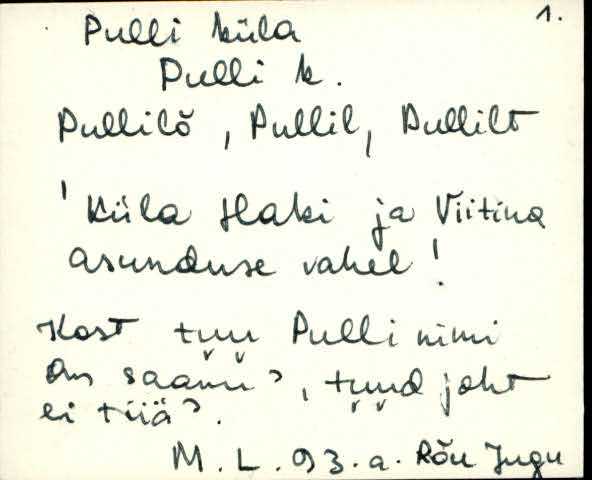 1.
Pulli küla
Pulli k.
Pullilõ, Pullil, Pullilt
'Küla Haki ja Viitina
asunduse vahel'.
Kost tuu Pulli nimi
om saanuʼ, tuud joht
ei tiiäʼ.
M. L. 93. a. Rõu Jugu